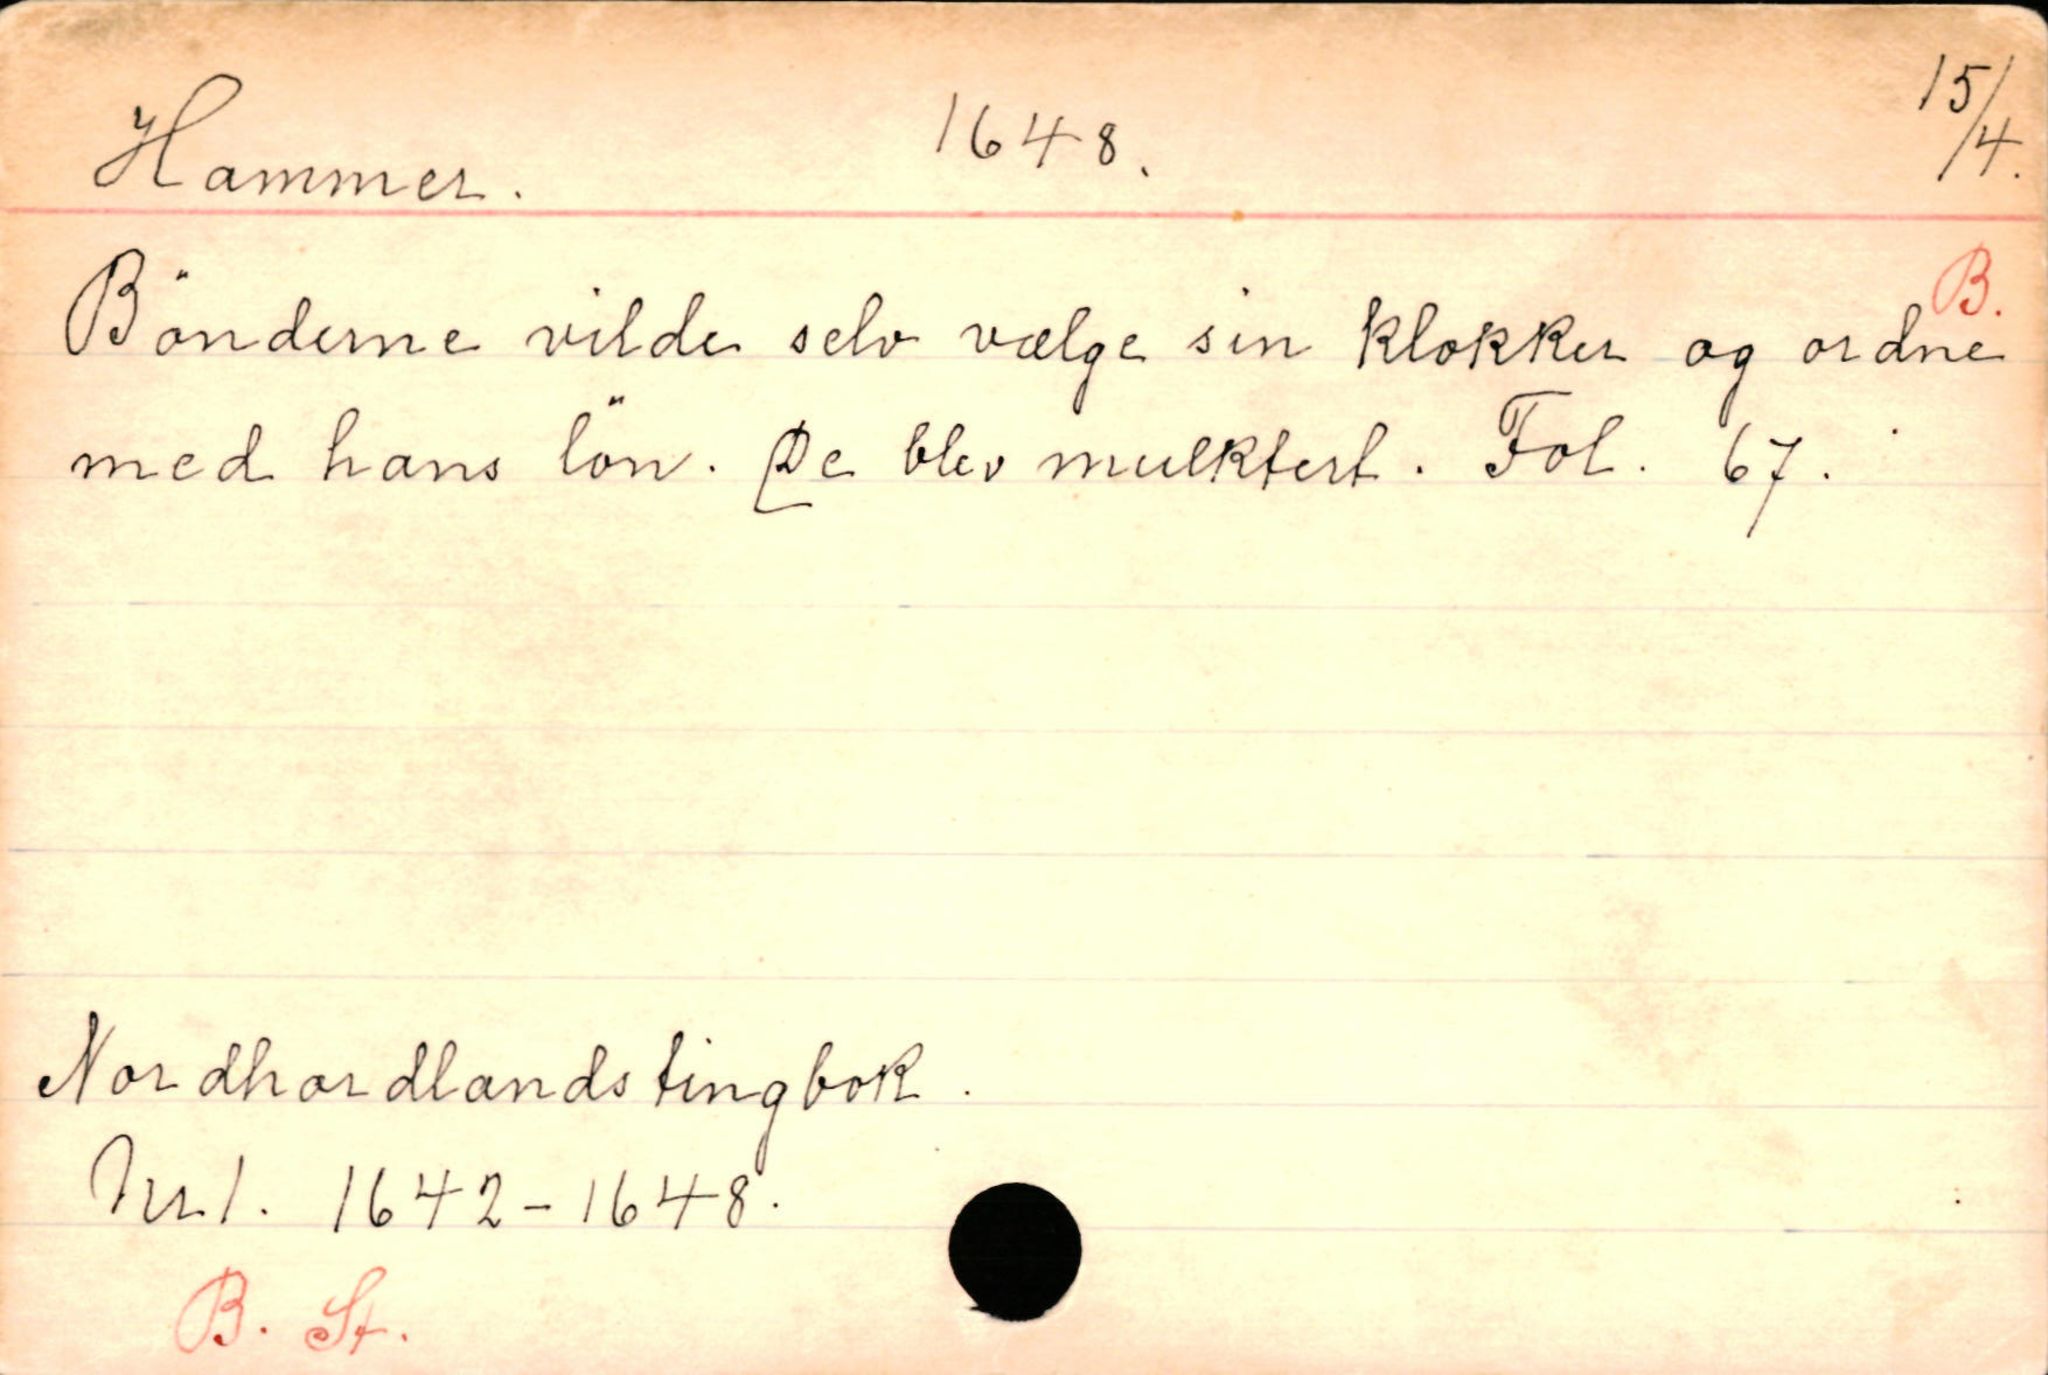 Hammer. 1648. 15/4.
B.
Bönderne vilde selv vælge sin klokker og ordne
med hans lön. De blev mulktert. Fol. 67.
Nordhordlandstingbok.
Nr 1. 1642-1648.
B. St.